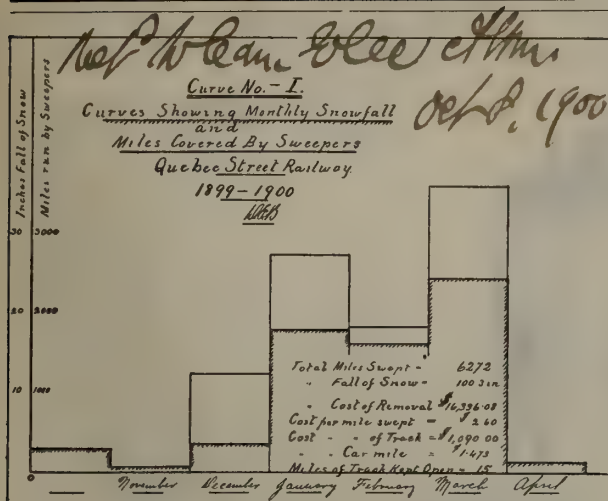 Oct 8, 1900
Curve No. - I.
Curves Showing Monthly Snowfall
and
Miles Covered By Sweepers
Quebec Street Railway
1899-1900
Inches Fall of Snow
Miles run by Sweepers
30 3000
20 2000
10 1000
0
Total Miles Swept - 6272
" Fall of Snow - 100.3 in
" Cost of Removal $16,336.08
Cost per mile swept = $2.60
Cost " " of Track = $1,090.00
" " Car mile = $1.473
Miles of Track Kept Open = 15
November December January February March April